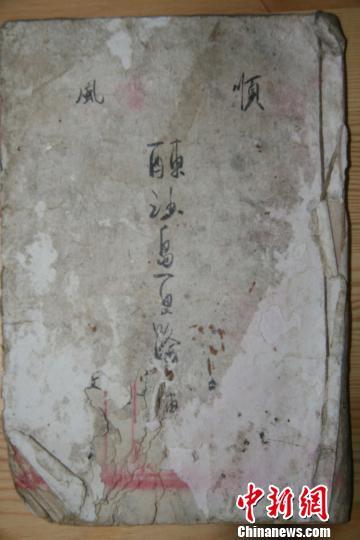 順風
東西沙島更路簿
中新网
Chinanews.com